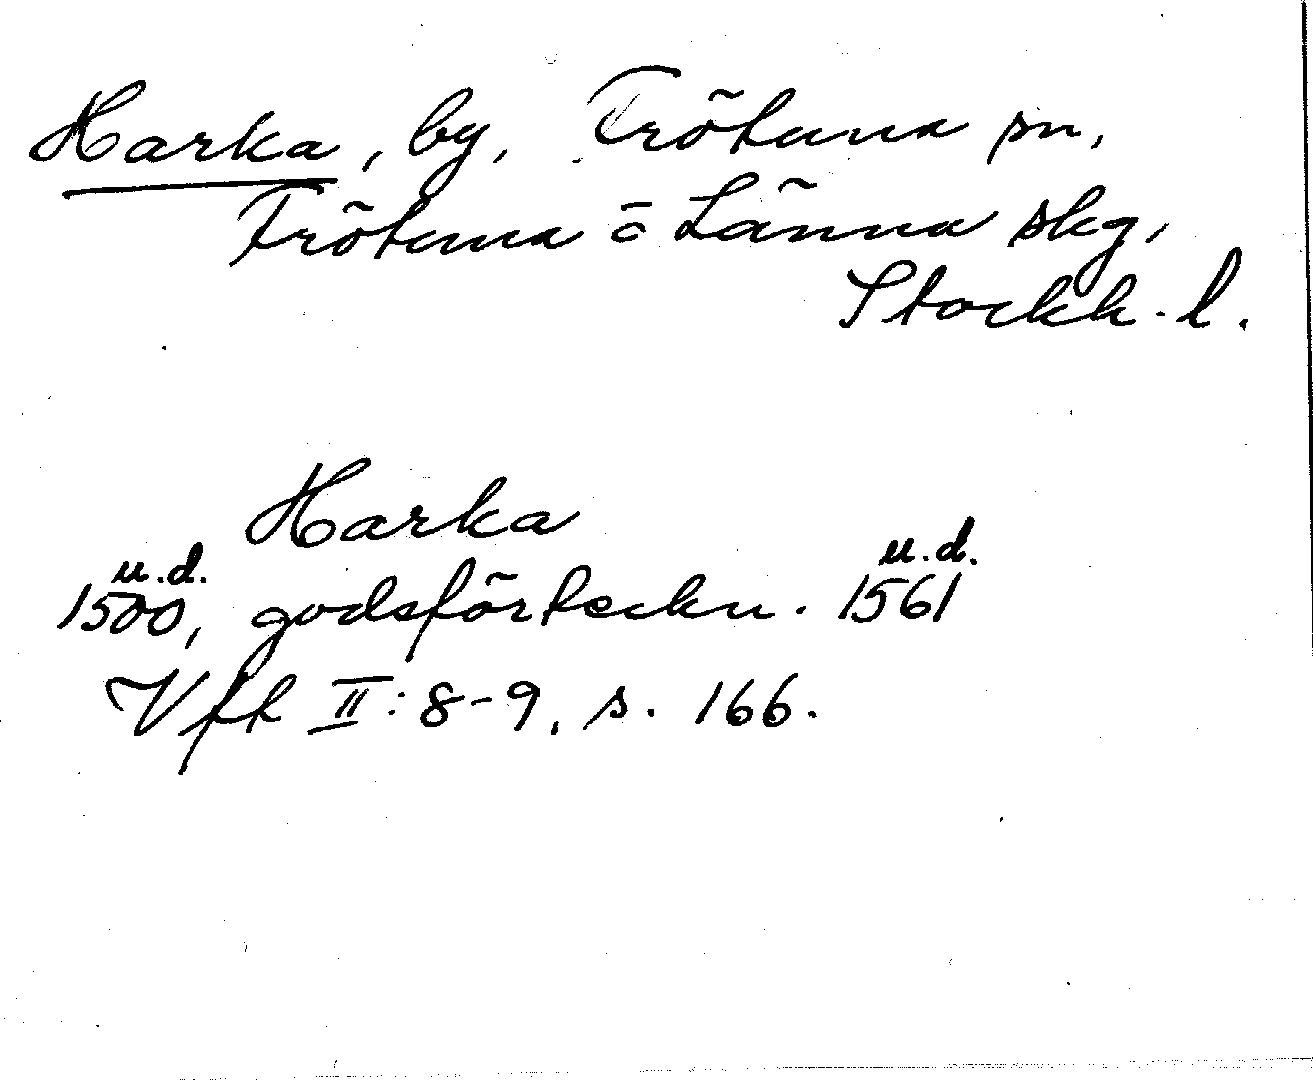 Harka, by, Frötuna sn,
Frötuna o Länna skg,
Stockh. l.
Harka
u.d. u.d.
1500, godsförteckn. 1561
Vfh II: 8-9, s. 166.